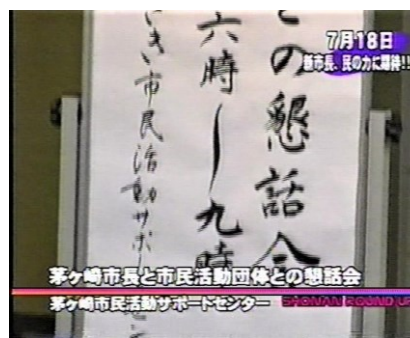 7月18日
新市長、民の力に期待!!
との懇話会
六時〜九時
市民活動サポート
茅ヶ崎市長と市民活動団体との懇話会
茅ヶ崎市民活動サポートセンター
SHONAN ROUND UP